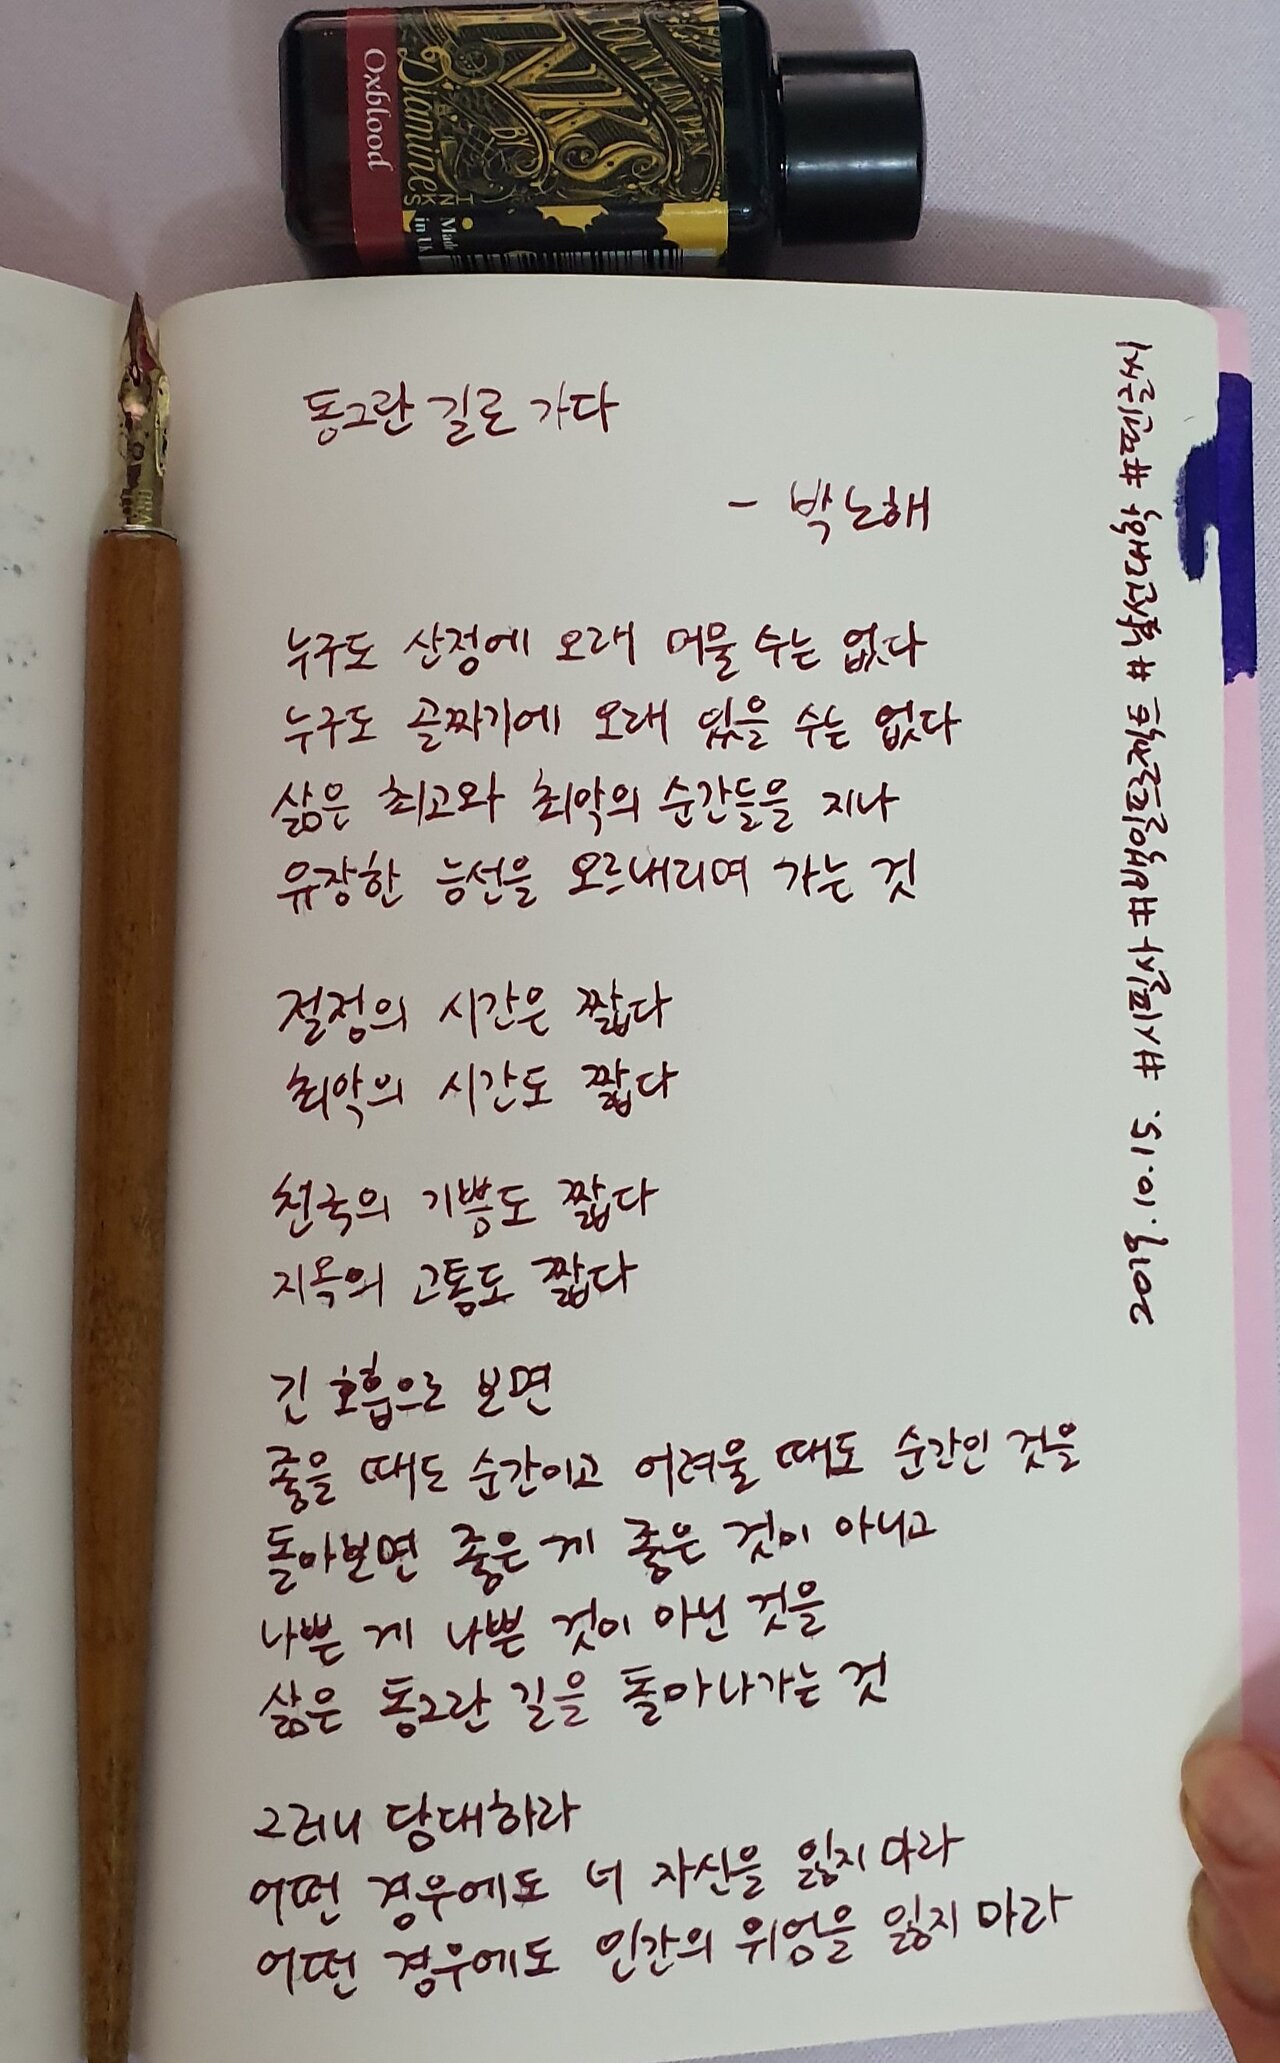 FOUNTAIN PEN
INKS
BY
Diamine
INKS
Made in U.K
Oxblood
동그란 길로 가다
- 박노해
누구도 산정에 오래 머물 수는 없다
누구도 골짜기에 오래 있을 수는 없다
삶은 최고와 최악의 순간들을 지나
유장한 능선을 오르내리며 가는 것
절정의 시간은 짧다
최악의 시간도 짧다
천국의 기쁨도 짧다
지옥의 고통도 짧다
긴 호흡으로 보면
좋을 때도 순간이고 어려울 때도 순간인 것을
돌아보면 좋은 게 좋은 것이 아니고
나쁜 게 나쁜 것이 아닌 것을
삶은 동그란 길을 돌아나가는 것
그러니 담대하라
어떤 경우에도 너 자신을 잃지 마라
어떤 경우에도 인간의 위엄을 잃지 마라
2019. 10. 15.